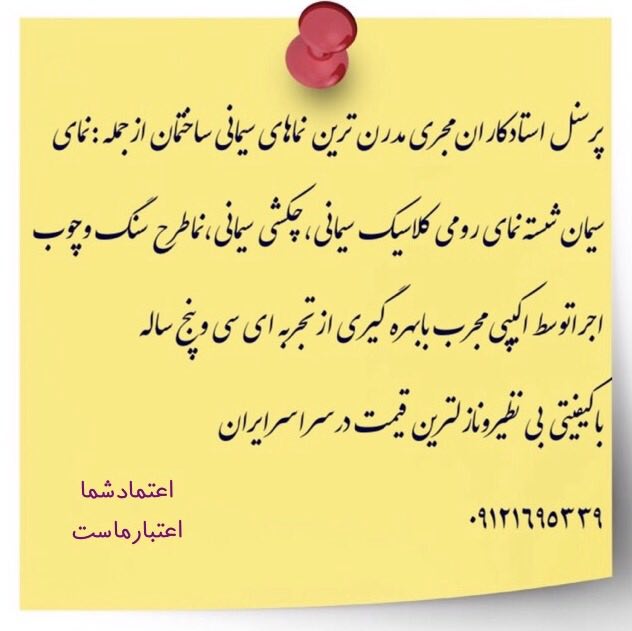 پرسنل استادکاران مجری مدرن ترین نماهای سیمانی ساختمان از جمله : نمای
سیمان شسته نمای رومی کلاسیک سیمانی ، چکشی سیمانی ، نما طرح سنگ و چوب
اجرا توسط اکیپی مجرب با بهره گیری از تجربه ای سی و پنج ساله
با کیفیتی بی نظیر و نازلترین قیمت در سراسر ایران
۰۹۱۲۱۶۹۵۳۳۹
اعتماد شما
اعتبار ماست